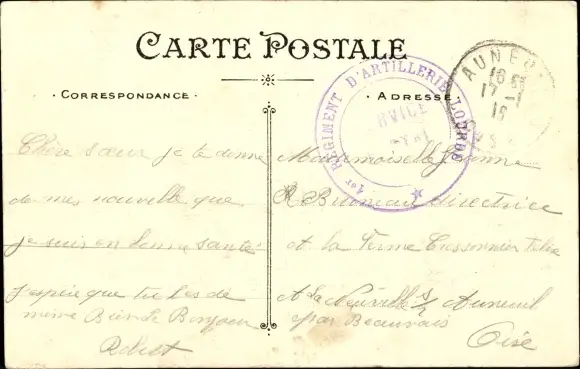 CARTE POSTALE
CORRESPONDANCE
ADRESSE
1er REGIMENT D'ARTILLERIE LOURDE
AUNEU
16
17 - 1
16
Chère sœur je te donne
de mes nouvelle que
je suis en bonne santé
j'espère que tu les de
même Bien Le Bonjour
Mademoiselle
R Bruneau directrice
et la Ferme
A La Neuville s/ Auneuil
par Beauvais
Oise